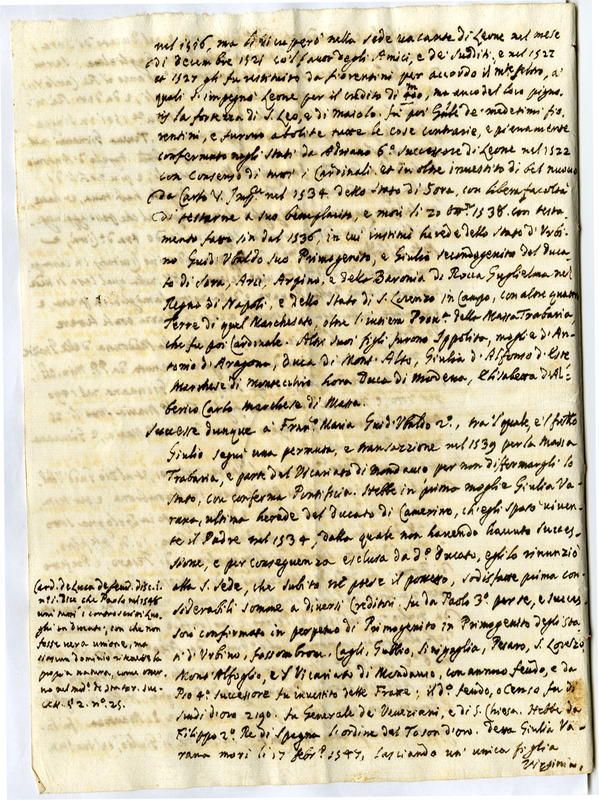 nel 1516, ma li ricuperò nella sede vacante di Leone nel mese
di decembre 1521 co'l favor degli Amici, e de' sudditi, e nel 1522
et 1527 gli fu restituito da fiorentini per accordo il feltro, a'
quali s'impegnò Leone per il credito di , ma anco del loro pigno
la fortezza di S. Leo, e di maiolo. fu poi de' medesimi fio-
rentini, e furono abolite tutte le cose contrarie, e pienamente
confermato negli stati da Adriano 6º successore di Leone nel 1522
con consenso di tutti i Cardinali. et in oltre investito di bel nuovo
da Carlo V. Impre nel 1534 dello stato di Sora, con libera facoltà
di testarne a suo beneplacito, e morì li 20 8bre 1538. con testa-
mento fatto sin dal 1536, in cui instituì herede dello stato d'Urbi-
no Guid'Ubaldo suo Primogenito, e Giulio secondogenito del duca-
to di Sora, Arci, Arpino, e della Baronia di Rocca Guglielma nel
Regno di Napoli, e dello stato di S. Lorenzo in Campo, con altre quattro
Terre di quel Marchesato, oltre l'intiera Prova della Massa Trabaria
che fu poi Cardinale. Altri suoi figli furono Ippolita, moglie d'An-
tonio d'Aragona, duca di Mont'Alto, Giulia d'Alfonso d'Este
Marchese di Montecchio hora Duca di Modena, Elisabetta d'Al-
berico Carlo marchese di Massa.
Successe dunque a' Franco Maria Guid'Ubaldo 2º, tra'l quale, e'l frello
Giulio seguì una permuta, e transazzione nel 1539 per la Massa
Trabaria, e parte del Vicariato di Mondavio per non difformargli lo
stato, con conferma Pontificia. Hebbe in prima moglie Giulia Va-
rana, ultima herede del ducato di Camerino, ch'egli sposò viven-
te il Padre nel 1534, dalla quale non havendo havuto succes-
sione, e per conseguenza esclusa da do ducato, egli lo rinunziò
alla S. Sede, che subito ne prese il possesso, sodisfatte prima con-
siderabili somme a diversi creditori. fu da Paolo 3º per se, e succes-
sori confirmato in perpetuo di Primogenito in Primogenito degli sta-
ti d'Urbino, fossombrone, Cagli, Gubbio, Sinigaglia, Pesaro, S. Lorenzo
Mont'Alfoglio, e'l Vicariato di Mondavio, con annuo feudo, e da
Pio 4º successore fu investito delle Fratte; il do feudo, o Censo, fu di
scudi d'oro 2190. fu Generale de' Veneziani, e di S. Chiesa. Hebbe da
Filippo 2º Re di Spagna l'ordine del Toson d'oro. detta Giulia Va-
rana morì li 17 febro 1547, lasciando un'unica figlia
Virginia,
Card. de Luca de feud. disc. 1.
nº 5. dice che Paolo nel 1548
unì tutti i luo-
ghi in ducato, con che non
fosse vera unione, ma
ciascun dominio ritenesse la
propria natura, come
succ. § 2. nº 25.